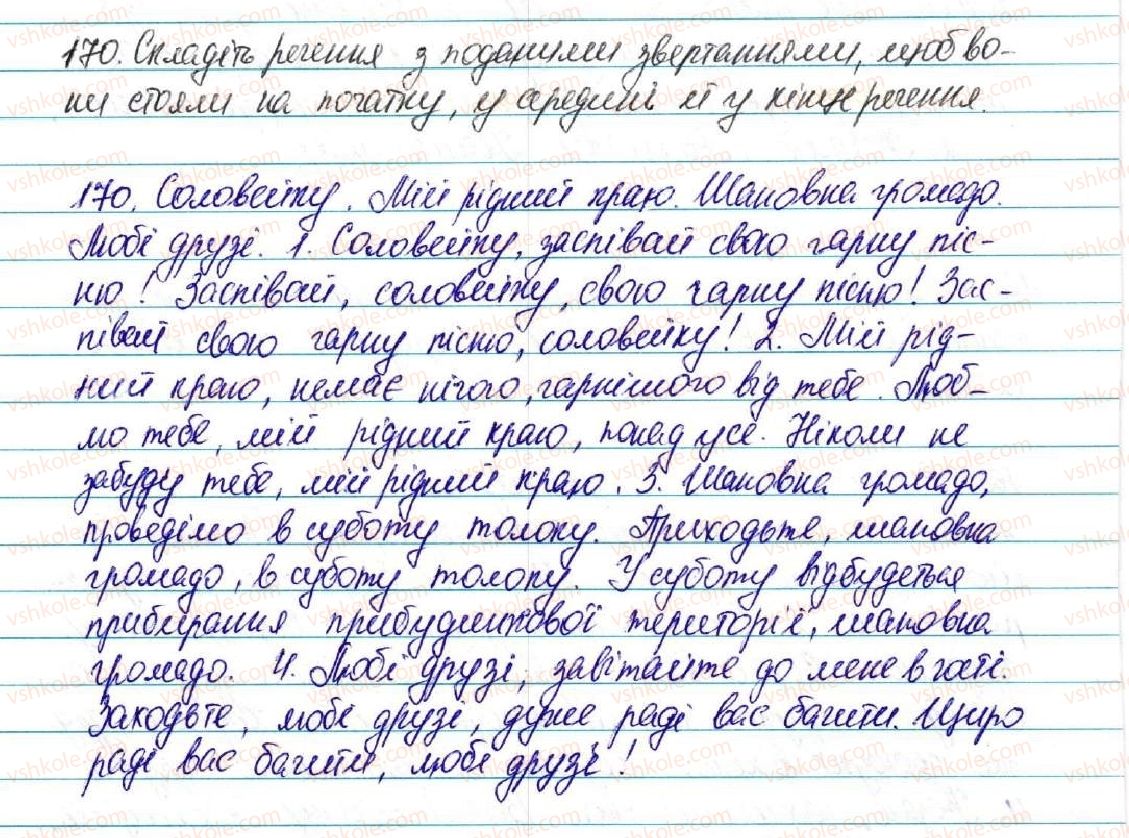 170. Складіть речення з поданими звертаннями, щоб во-
ни стояли на початку, у середині й у кінці речення.
170. Соловейку. Мій рідний краю. Шановна громадо.
Любі друзі. 1. Соловейку, заспівай свою гарну піс-
ню! Заспівай, соловейку, свою гарну пісню! Зас-
півай свою гарну пісню, соловейку! 2. Мій рід-
ний краю, немає нічого, гарнішого від тебе. Люб-
мо тебе, мій рідний краю, понад усе. Ніколи не
забуду тебе, мій рідний краю. 3. Шановна громадо,
проведімо в суботу толоку. Приходьте, шановна
громадо, в суботу толоку. У суботу відбудеться
прибирання прибудинкової території, шановна
громадо. 4. Любі друзі, завітайте до мене в гості.
Заходьте, любі друзі, дуже раді вас бачити. Щиро
раді вас бачити, любі друзі!